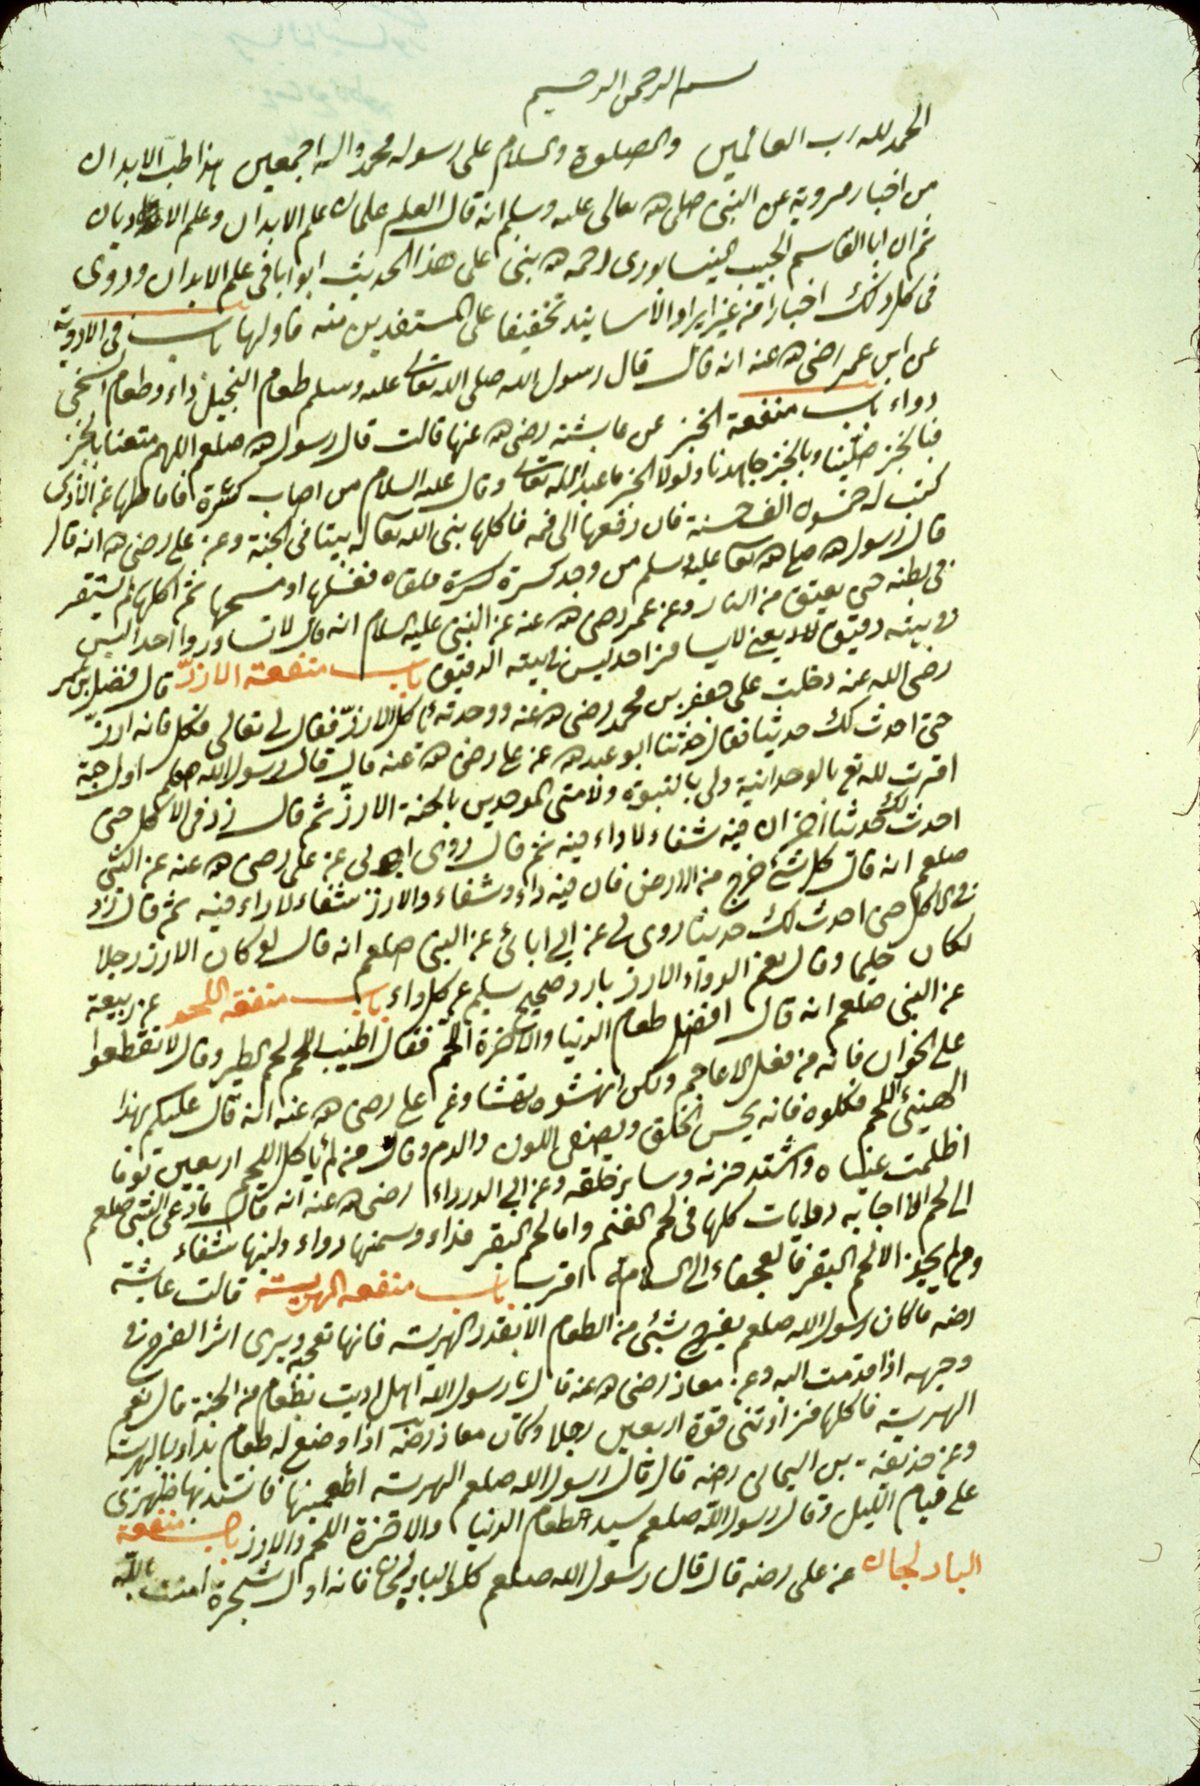 بسم الله الرحمن الرحيم
الحمد لله رب العالمين والصلوة والسلام على رسوله محمد واله اجمعين هذا طب الابدان
من اخبار مروية عن النبى صلى الله تعالى عليه وسلم انه قال العلم علمان علم الابدان وعلم الاديان
ثم ان ابا القاسم الحبيب النيسابورى رحمه الله بنى على هذا الحديث ابوابا فى علم الابدان وروى
فى كل ذلك اخبارا من غير ايراد الأسانيد تخفيفا على المستفدين منه فاولها باب فى الادوية
عن ابن عمر رضى الله عنه انه قال قال رسول الله صلى الله تعالى عليه وسلم طعام البخيل داء وطعام السخى
دواء باب منفعة الخبز عن عايشة رضى الله عنها قالت قال رسول الله صلعم اللهم متعنا بالخبز
فبالخبز صلينا وبالخبز جاهدنا ولولا الخبز ما عبد الله تعالى وقال عليه السلام من اصاب كسرة فاماطها عن الأذى
كتب له خمسون الف حسنة فان رفعها الى فمه فاكلها بنى الله تعالى له بيتا فى الجنة وعن على رضى الله انه قال
قال رسول الله صلى الله تعالى عليه وسلم من وجد كسرة ملقاه فغسلها او مسحها ثم اكلها لم تستقر
فى بطنه حتى يعتق من النار وعن عمر رضى الله عنه عن النبى عليه السلام انه قال لا تشاوروا احدا ليس
فى بيته دقيق يعنى من احد ليس فى بيته الدقيق باب منفعة الارز قال فضل بن
رضى الله عنه دخلت على جعفر بن محمد رضى الله عنه ووجدته ياكل الارز فقال لى تعالى فكل فانه ارز
حتى احدث لك حديثا فقال حدثنا ابو عبد الله عن على رضى الله عنه قال قال رسول الله صلعم اول حبة
اقرت لله تع بالوحدانية ولى بالنبوة ولامتى الموحدين بالجنة الارز ثم قال لى زد فى الاكل حتى
احدث لك حديثا آخر ان فيه شفاء لا داء فيه ثم قال روى ابى لى عن على رضى الله عنه عن النبى
صلعم انه قال كل شئ خرج من الارض فان فيه داء وشفاء والارز شفاء لا داء فيه ثم قال زد
فى الاكل حتى احدث لك حديثا روى لى عن ابى ابائى عن النبى صلعم انه قال لو كان الارز رجلا
لكان حليما وقال بعض الرواة الارز بارد صحيح سليم عن كل داء باب منفعة اللحم عن ربيعة
عن النبى صلعم انه قال افضل طعام الدنيا والاخرة اللحم فقال اطيب اللحم لحم الطير وقال لا تقطعوا
على الخوان فانه من فعل الاعاجم ولكن انهشوه نهشا وعن على رضى الله عنه انه قال عليكم بهذا
اللحم فكلوه فانه يحسن الخلق ويصفى اللون والدم وقال من لم ياكل اللحم اربعين يوما
اظلمت عيناه واشتد حزنه وساء خلقه وعن ابى الدرداء رضى الله عنه انه قال ما دعى النبى صلعم
الى لحم الا اجابه روايات كلها فى لحم الغنم واما لحم البقر فداء وسمنها دواء ولبنها شفاء
ومن لم يجد الا لحم البقر فالعجفاء الى السلامة اقرب باب منفعة الهريسة قالت عايشة
رضه ما كان رسول الله صلعم يفرح بشئ من الطعام الا بقدر الهريسه فانها تعجبه ويرى اثر الفرح فى
وجهه اذا قدمت اليه وعن معاذ رضى الله عنه قال يا رسول الله اهل اوتيت بطعام من الجنة قال نعم
الهريسة فاكلها فزادتنى قوة اربعين رجلا وكان معاذ رضه اذا وضع له طعام بداء بالهريسة
وعن حذيفة بن اليمانى رضه قال قال رسول الله صلعم الهريسة اطعمنيها فاشتد بها ظهرى
على قيام الليل وقال رسول الله صلعم سيد الطعام الدنيا والاخرة اللحم والارز باب منفعة
البادنجان عن على رضه قال قال رسول الله صلعم كلوا البادنجان فانه اول شجرة امنت بالله